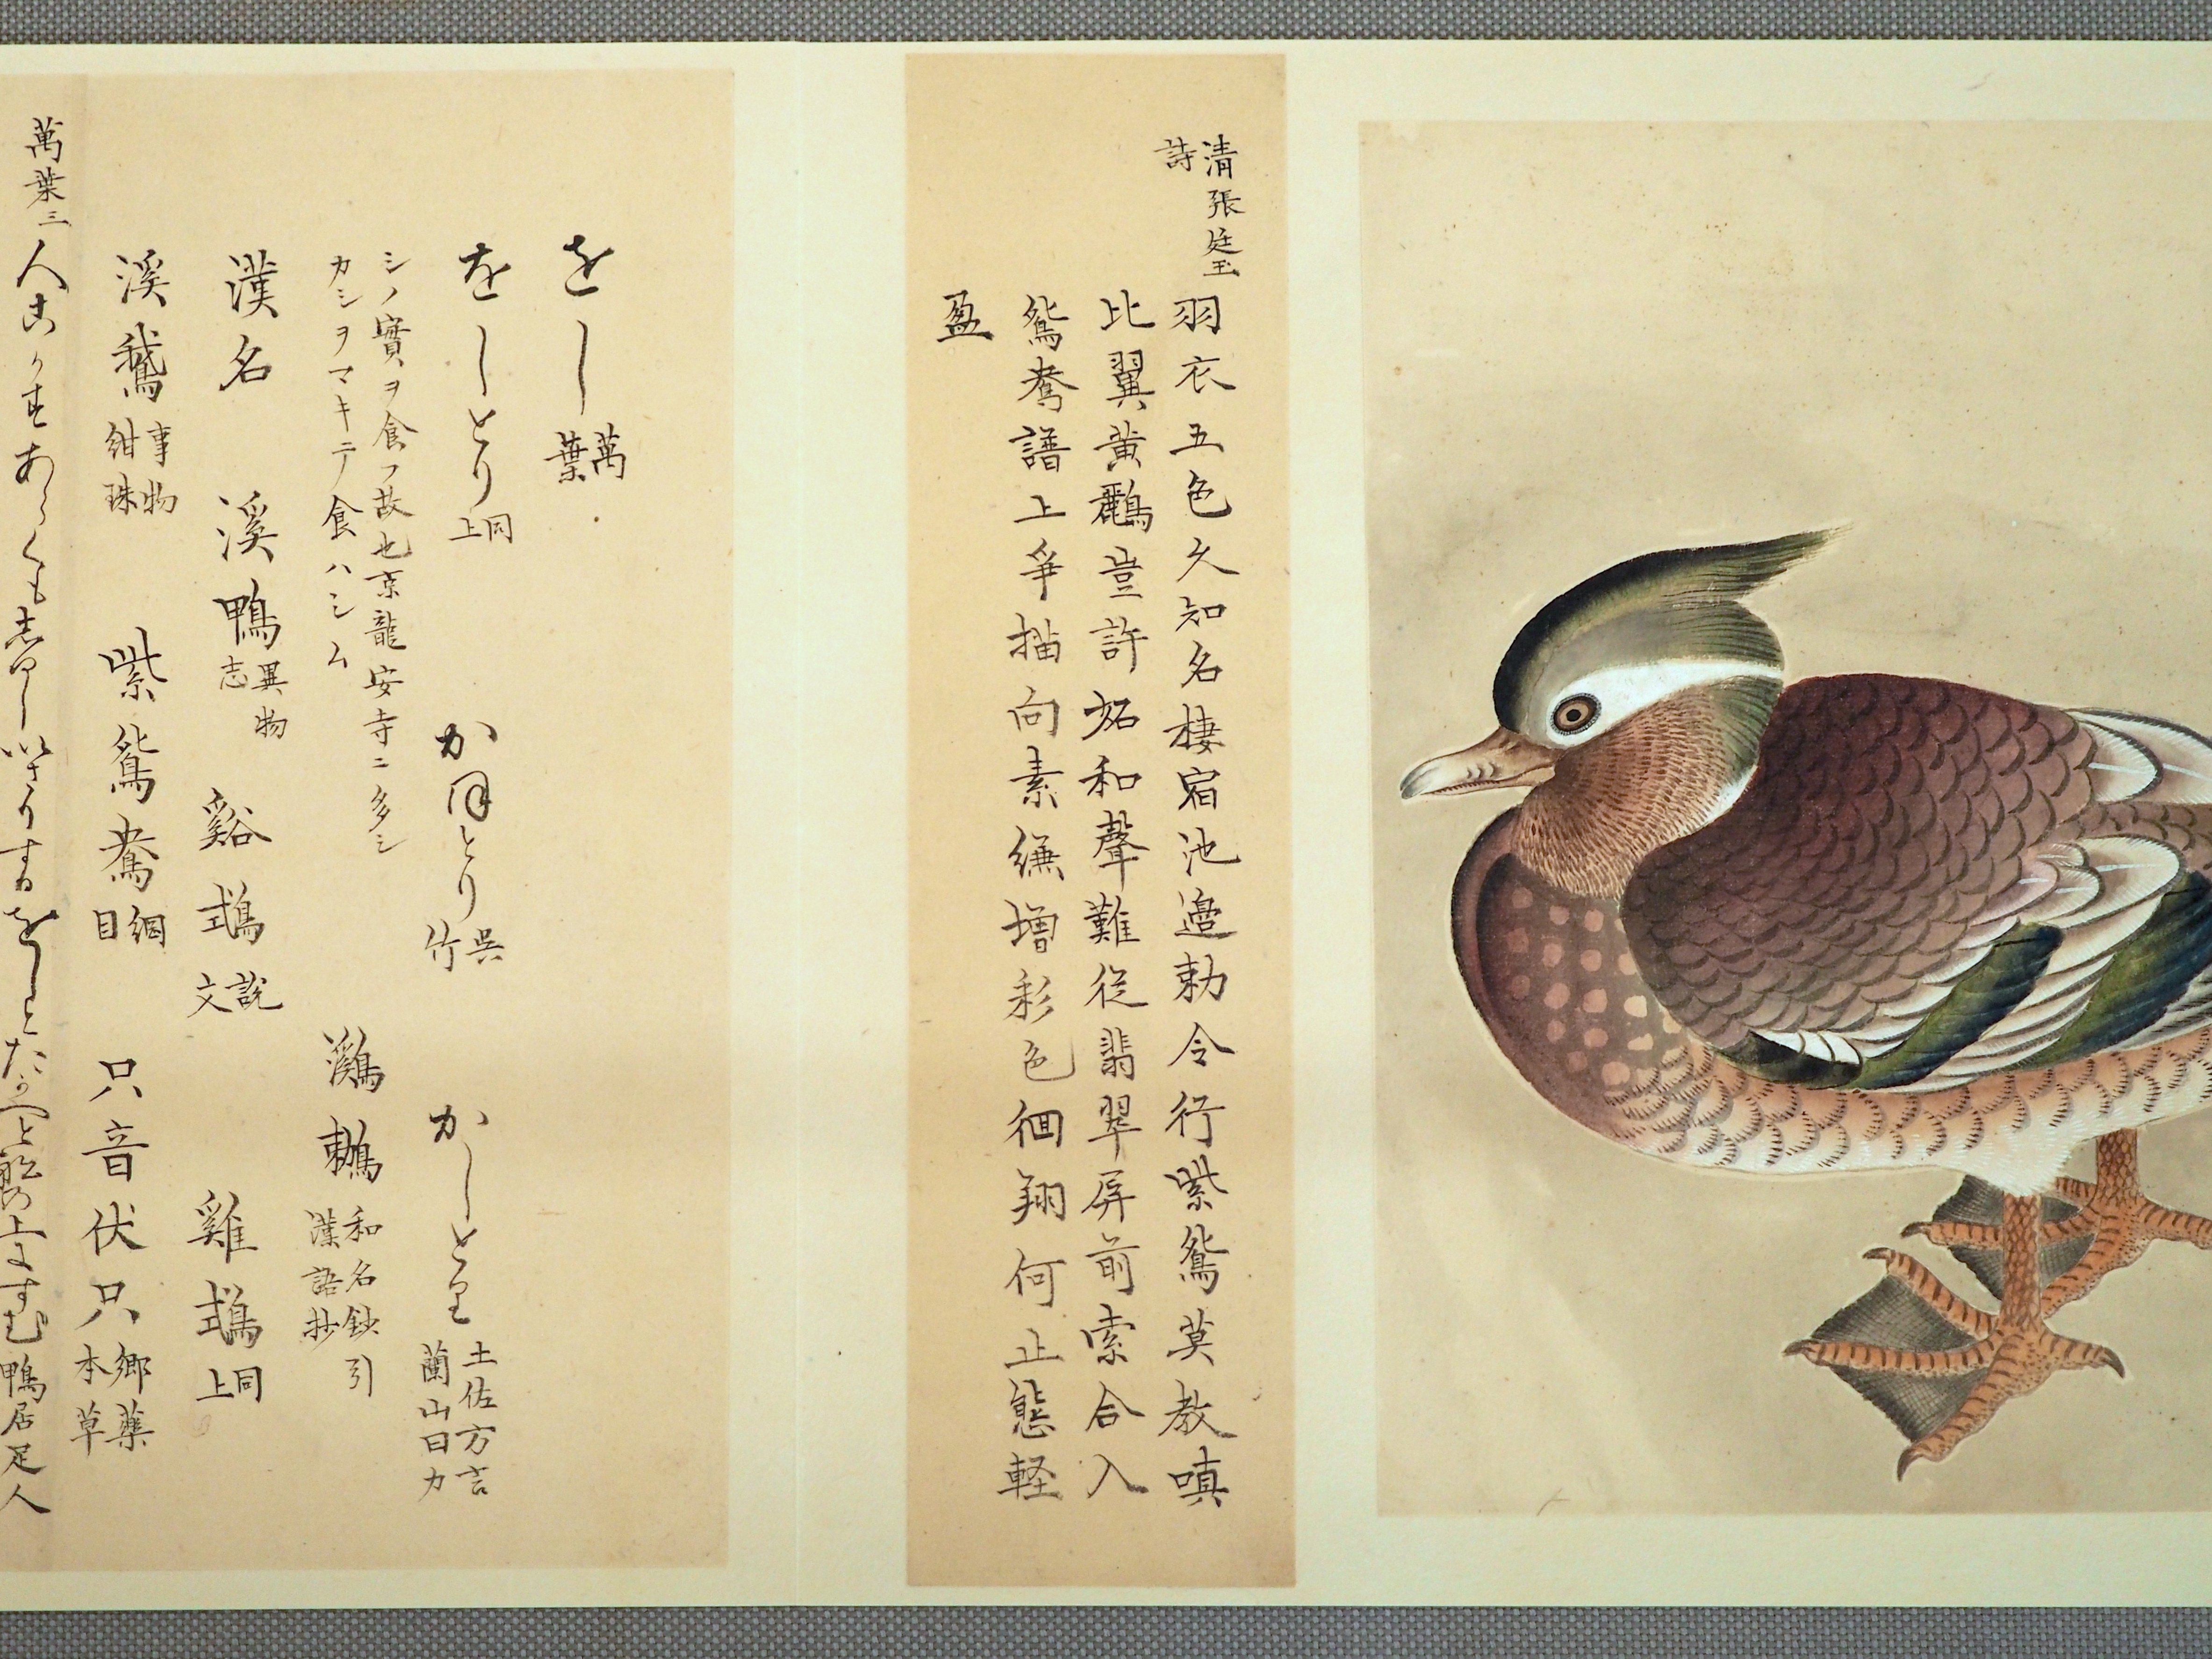 清張廷玉
詩
羽衣五色久知名棲宿池邉勅令行紫鴛莫教嗔
比翼黄鸝豈許妬和聲難從翡翠屏前索合入
鴛鴦譜上爭描向素縑増彩色徊翔何止態軽
盈
をし萬葉
をしとり同上
かほとり呉竹
かしとり土佐方言蘭山曰カ
シノ實ヲ食フ故也京龍安寺ニ多シ
カシヲマキテ食ハシム
鸂鷘和名鈔引漢語抄
漢名
溪鴨異物志
谿鵡説文
雞鵡同上
溪鵞事物紺珠
紫鴛鴦綱目
只音伏只郷薬本草
萬葉三
鴨居足人